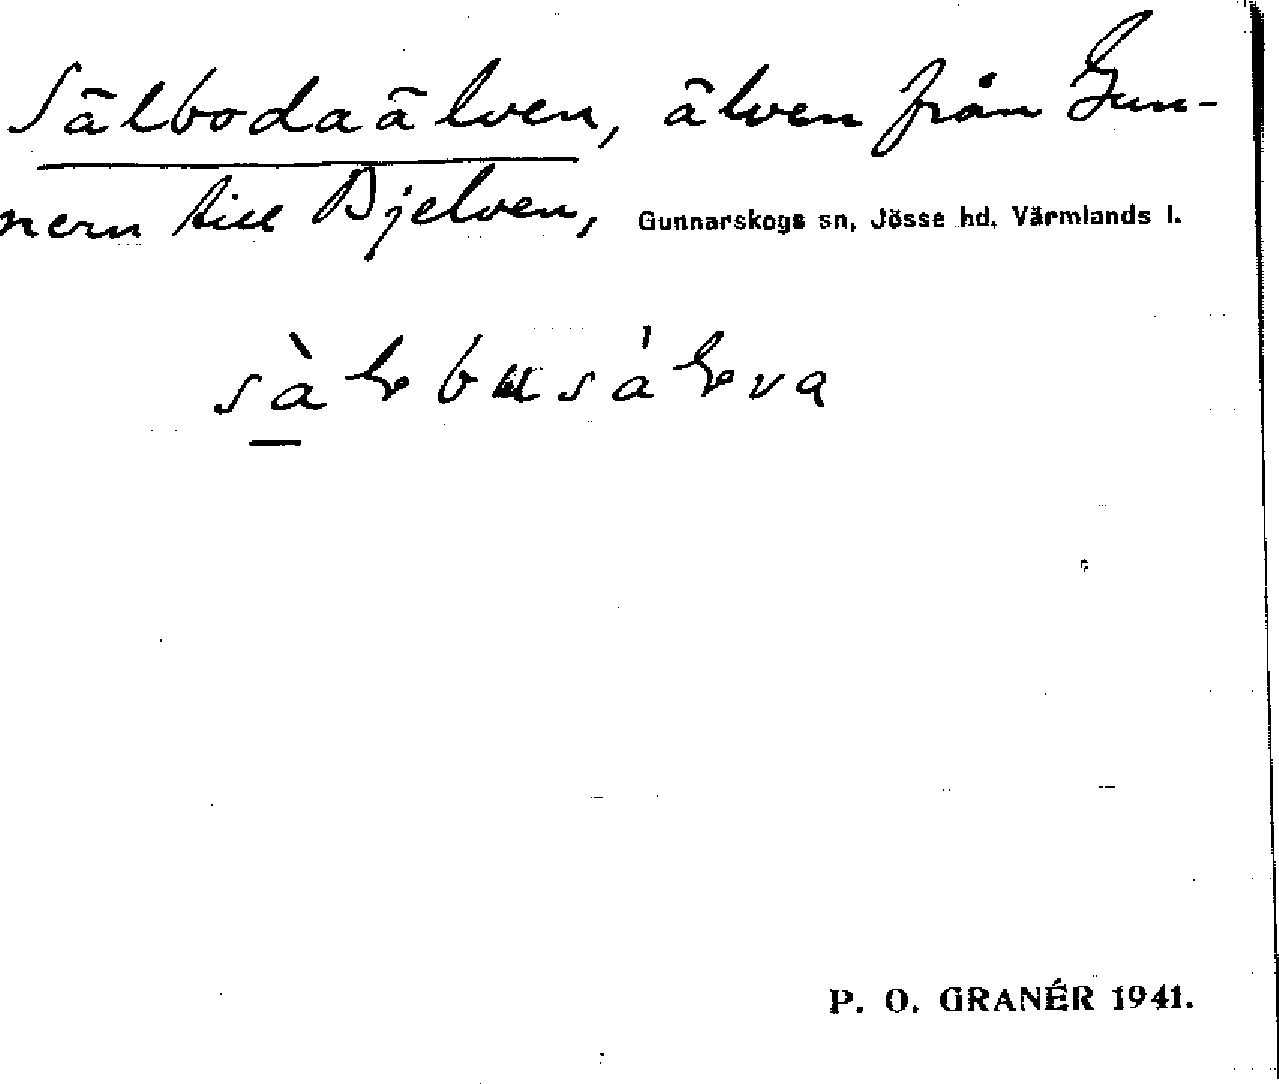 Sälbodaälven, älven från Gun-
nern till Bjelven, Gunnarskogs sn, Jösse hd, Värmlands l.
P. O. GRANÉR 1941.